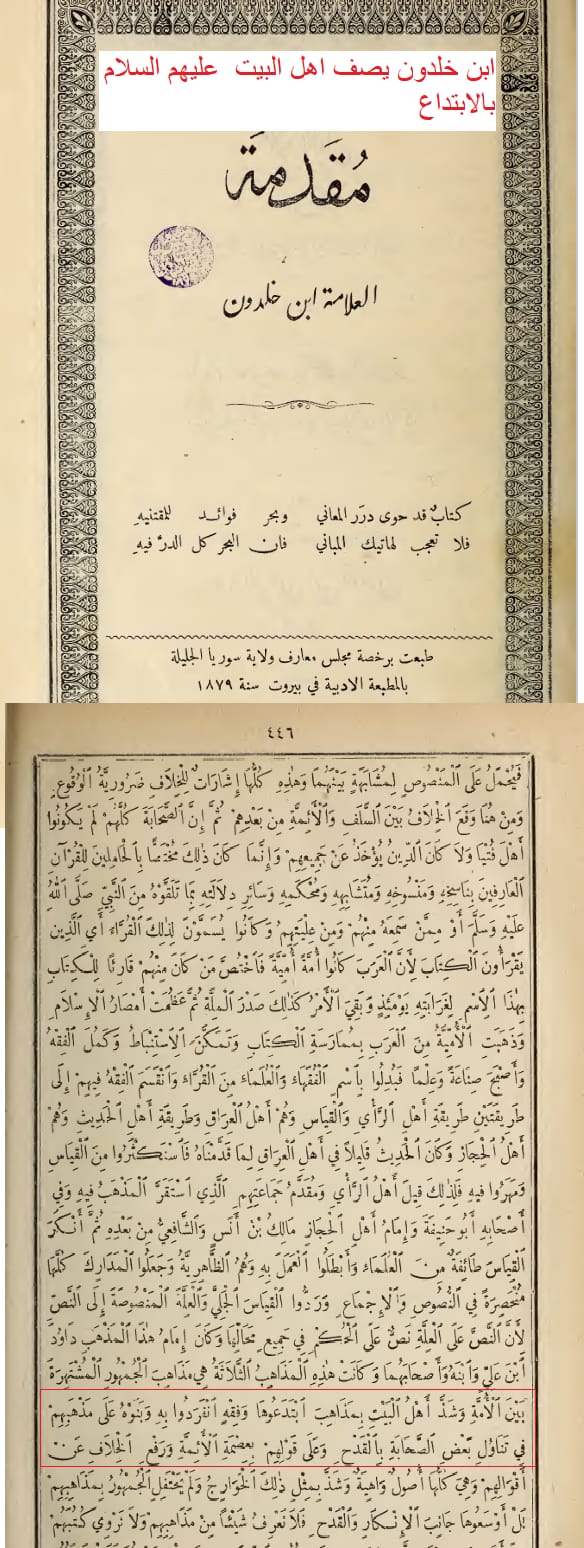 ابن خلدون يصف اهل البيت عليهم السلام
بالابتداع
مُقَدَّمَة
العلامة ابن خلدون
كتاب قد حوى درَر المعاني وبحر فوائد للمقتنيهِ
فلا تعجب لهاتيك المباني فان البحر كل الدرّ فيهِ
طبعت برخصة مجلس معارف ولاية سوريا الجليلة
بالمطبعة الادبية في بيروت سنة ١٨٧٩
٤٤٦
فَيُحْمَلُ عَلَى ٱلْمَنْصُوصِ لِمُشَابَهَةٍ بَيْنَهُمَا وَهٰذِهِ كُلُّهَا إِشَارَاتٌ لِلْخِلَافِ ضَرُورِيَّةُ ٱلْوُقُوعِ
وَمِنْ هُنَا وَقَعَ ٱلْخِلَافُ بَيْنَ ٱلسَّلَفِ وَٱلْأَئِمَّةِ مِنْ بَعْدِهِمْ ثُمَّ إِنَّ ٱلصَّحَابَةَ كُلَّهُمْ لَمْ يَكُونُوا
أَهْلَ فُتْيَا وَلَا كَانَ ٱلدِّينُ يُؤْخَذُ عَنْ جَمِيعِهِمْ وَإِنَّمَا كَانَ ذٰلِكَ مُخْتَصًّا بِٱلْحَامِلِينَ لِلْقُرْآنِ
ٱلْعَارِفِينَ بِنَاسِخِهِ وَمَنْسُوخِهِ وَمُتَشَابِهِهِ وَمُحْكَمِهِ وَسَائِرِ دِلَالَتِهِ بِمَا تَلَقَّوْهُ مِنَ ٱلنَّبِيِّ صَلَّى ٱللّٰهُ
عَلَيْهِ وَسَلَّمَ أَوْ مِمَّنْ سَمِعَهُ مِنْهُمْ وَمِنْ عِلْيَتِهِمْ وَكَانُوا يُسَمَّوْنَ لِذٰلِكَ ٱلْقُرَّاءَ أَيِ ٱلَّذِينَ
يَقْرَأُونَ ٱلْكِتَابَ لِأَنَّ ٱلْعَرَبَ كَانُوا أُمَّةً أُمِّيَّةً فَٱخْتُصَّ مَنْ كَانَ مِنْهُمْ قَارِئًا لِلْكِتَابِ
بِهٰذَا ٱلِٱسْمِ لِغَرَابَتِهِ يَوْمَئِذٍ وَبَقِيَ ٱلْأَمْرُ كَذٰلِكَ صَدْرَ ٱلْمِلَّةِ ثُمَّ عَظُمَتْ أَمْصَارُ ٱلْإِسْلَامِ
وَذَهَبَتِ ٱلْأُمِّيَّةُ مِنَ ٱلْعَرَبِ بِمُمَارَسَةِ ٱلْكِتَابِ وَتَمَكَّنَ ٱلِٱسْتِنْبَاطُ وَكَمُلَ ٱلْفِقْهُ
وَأَصْبَحَ صِنَاعَةً وَعِلْمًا فَبُدِّلُوا بِٱسْمِ ٱلْفُقَهَاءِ وَٱلْعُلَمَاءِ مِنَ ٱلْقُرَّاءِ وَٱنْقَسَمَ ٱلْفِقْهُ فِيهِمْ إِلَى
طَرِيقَتَيْنِ طَرِيقَةِ أَهْلِ ٱلرَّأْيِ وَٱلْقِيَاسِ وَهُمْ أَهْلُ ٱلْعِرَاقِ وَطَرِيقَةِ أَهْلِ ٱلْحَدِيثِ وَهُمْ
أَهْلُ ٱلْحِجَازِ وَكَانَ ٱلْحَدِيثُ قَلِيلًا فِي أَهْلِ ٱلْعِرَاقِ لِمَا قَدَّمْنَاهُ فَٱسْتَكْثَرُوا مِنَ ٱلْقِيَاسِ
وَمَهَرُوا فِيهِ فَلِذٰلِكَ قِيلَ أَهْلُ ٱلرَّأْيِ وَمُقَدَّمُ جَمَاعَتِهِمِ ٱلَّذِي ٱسْتَقَرَّ ٱلْمَذْهَبُ فِيهِ وَفِي
أَصْحَابِهِ أَبُو حَنِيفَةَ وَإِمَامُ أَهْلِ ٱلْحِجَازِ مَالِكُ بْنُ أَنَسٍ وَٱلشَّافِعِيُّ مِنْ بَعْدِهِ ثُمَّ أَنْكَرَ
ٱلْقِيَاسَ طَائِفَةٌ مِنَ ٱلْعُلَمَاءِ وَأَبْطَلُوا ٱلْعَمَلَ بِهِ وَهُمُ ٱلظَّاهِرِيَّةُ وَجَعَلُوا ٱلْمَدَارِكَ كُلَّهَا
مُنْحَصِرَةً فِي ٱلنُّصُوصِ وَٱلْإِجْمَاعِ وَرَدُّوا ٱلْقِيَاسَ ٱلْجَلِيَّ وَٱلْعِلَّةَ ٱلْمَنْصُوصَةَ إِلَى ٱلنَّصِّ
لِأَنَّ ٱلنَّصَّ عَلَى ٱلْعِلَّةِ نَصٌّ عَلَى ٱلْحُكْمِ فِي جَمِيعِ مَحَالِّهَا وَكَانَ إِمَامُ هٰذَا ٱلْمَذْهَبِ دَاوُدَ
ٱبْنَ عَلِيٍّ وَٱبْنَهُ وَأَصْحَابَهُمَا وَكَانَتْ هٰذِهِ ٱلْمَذَاهِبُ ٱلثَّلَاثَةُ هِيَ مَذَاهِبَ ٱلْجُمْهُورِ ٱلْمُشْتَهِرَةَ
بَيْنَ ٱلْأُمَّةِ وَشَذَّ أَهْلُ ٱلْبَيْتِ بِمَذَاهِبَ ٱبْتَدَعُوهَا وَفِقْهٍ ٱنْفَرَدُوا بِهِ وَبَنَوْهُ عَلَى مَذْهَبِهِمْ
فِي تَنَاوُلِ بَعْضِ ٱلصَّحَابَةِ بِٱلْقَدْحِ وَعَلَى قَوْلِهِمْ بِعِصْمَةِ ٱلْأَئِمَّةِ وَرَفْعِ ٱلْخِلَافِ عَنْ
أَقْوَالِهِمْ وَهِيَ كُلُّهَا أُصُولٌ وَاهِيَةٌ وَشَذَّ بِمِثْلِ ذٰلِكَ ٱلْخَوَارِجُ وَلَمْ يَحْتَفِلِ ٱلْجُمْهُورُ بِمَذَاهِبِهِمْ
بَلْ أَوْسَعُوهَا جَانِبَ ٱلْإِنْكَارِ وَٱلْقَدْحِ فَلَا نَعْرِفُ شَيْئًا مِنْ مَذَاهِبِهِمْ وَلَا نَرْوِي كُتُبَهُمْ